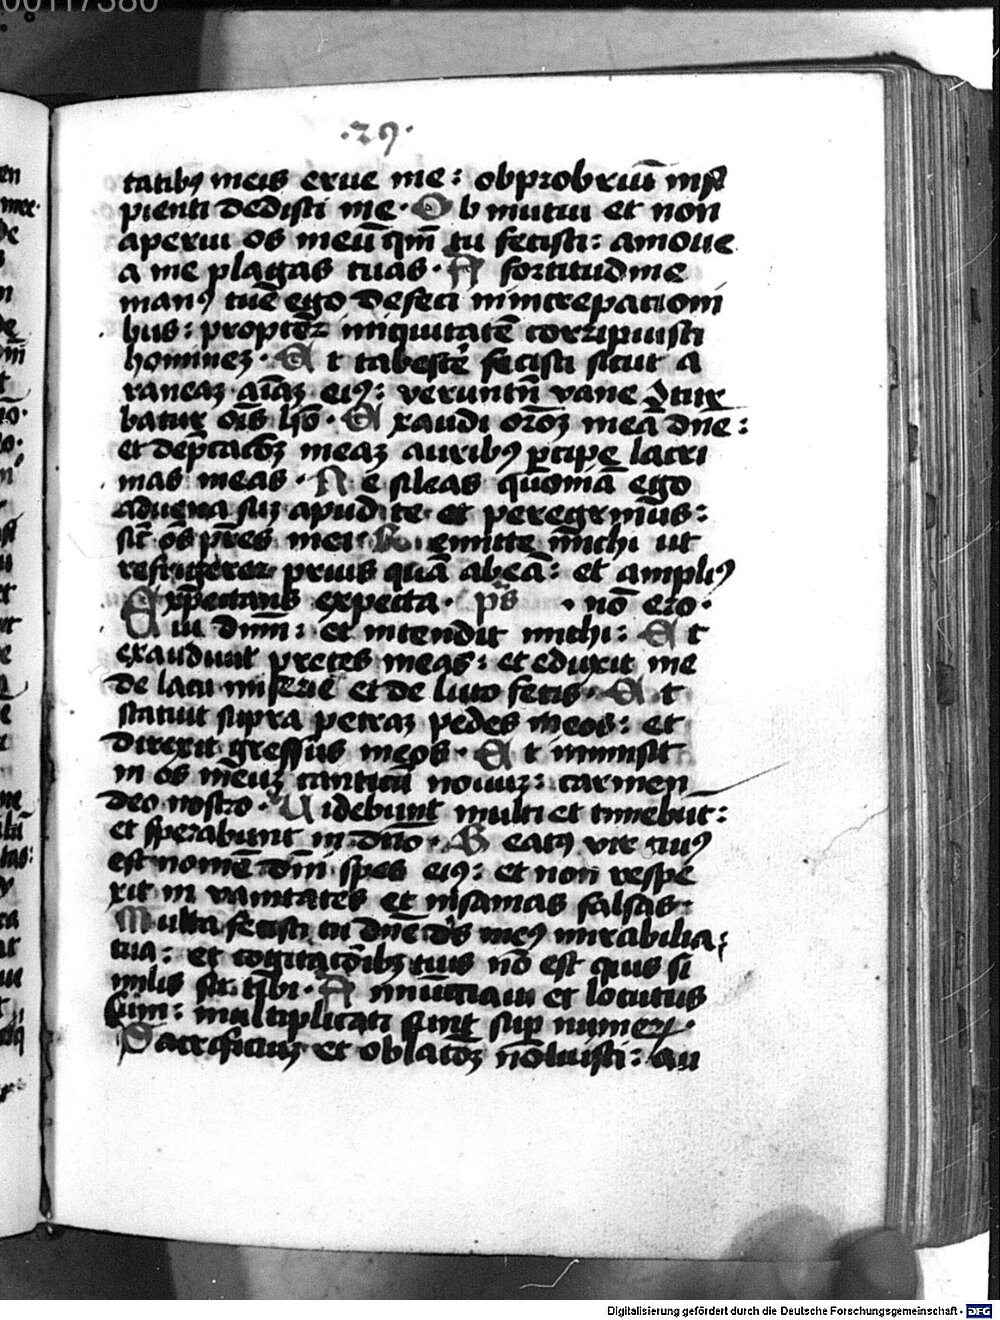 00117380
·29·
tatibꝯ meis erue me: obprobriū insi
pienti dedisti me· Ob mutui et non
aperui os meū qm̄ tu fecisti: amoue
a me plagas tuas· A fortitudine
manꝯ tue ego defeci in increpationi
bus: propter iniquitatē corripuisti
hominez· Et tabescē fecisti sicut a
raneaz aīaz eiꝯ: veruntn̄ vane ꝯtur
batur oīs hō· Exaudi orōz meā dn̄e:
et dep̄catōz meaz auribꝯ p̄cipe lacri
mas meas· Ne sileas quoniā ego
aduena suz apud te et peregrinus:
sic̄ oēs pr̄es mei· Remitte michi ut
refrigerer prius quā abeā: et ampliꝯ
Expectans expecta· ps̄ · nō ero·
ui dnm̄: et intendit michi: Et
exaudiuit preces meas: et eduxit me
de lacu miserie et de luto fecis· Et
statuit supra petraz pedes meos: et
direxit gressus meos· Et inmisit
in os meuz canticū nouuz: carmen
deo nostro· Uidebunt multi et timebūt:
et sperabunt in dn̄o· Beatꝯ vir cuiꝯ
est nomē dn̄i spes eiꝯ: et non respe
xit in vanitates et insanias falsas·
Multa fecisti tu dn̄e ds̄ meꝯ mirabilia
tua: et cogitatōibꝯ tuis nō est quis si
milis sit tibi· Annūtiaui et locutus
sum: multiplicati sunt sup numeꝝ·
Sacrificiuz et oblatōz nōluisti: au
Digitalisierung gefördert durch die Deutsche Forschungsgemeinschaft - DFG